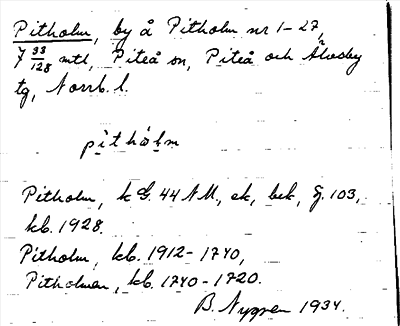 Pitholm, by å Pitholm nr 1-27,
7 33/128 mtl, Piteå sn, Piteå och Älvsby
tg, Norrb. l.
pithólm
Pitholm, k G. 44 NM, ek, bek, J. 103,
kb. 1928.
Pitholm, kb. 1912-1740,
Pitholmen, kb. 1740-1720.
B. Nygren 1934.